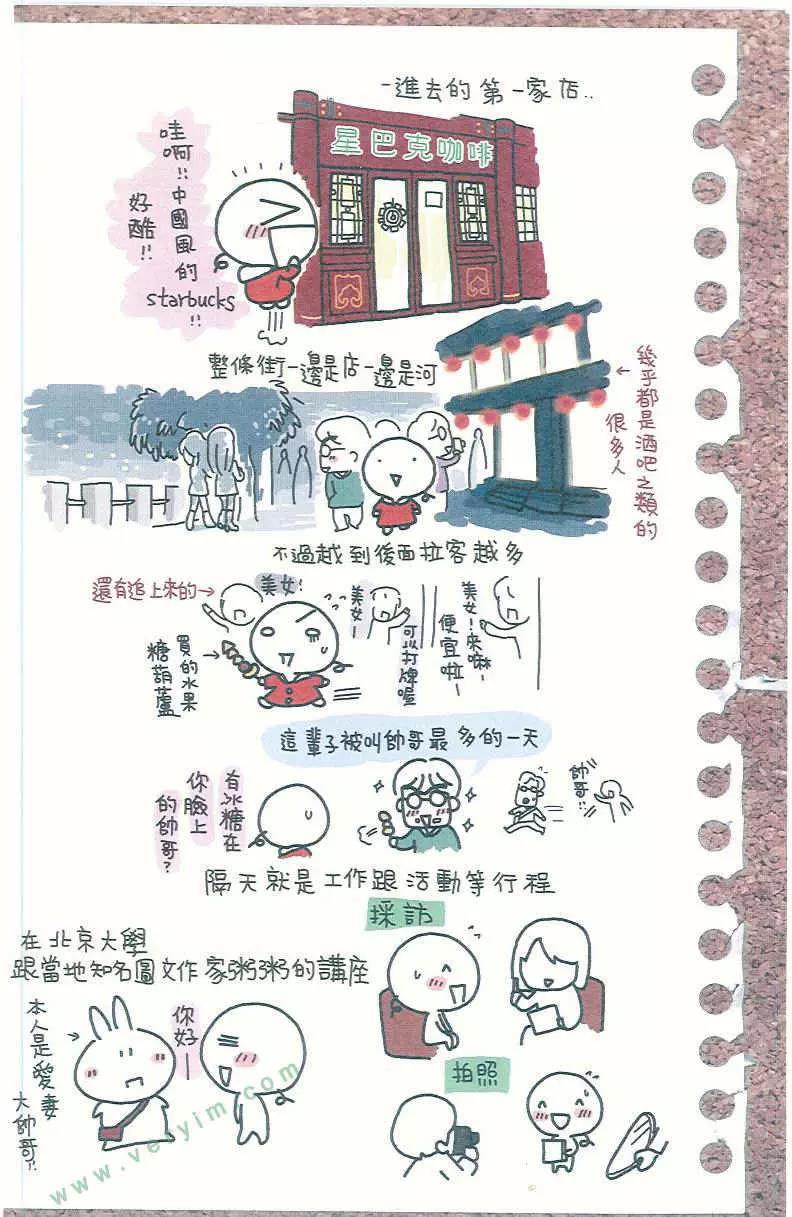 一進去的第一家店..
哇啊!!中國風的
starbucks!!
好酷!!
星巴克咖啡
整條街一邊是店一邊是河
幾乎都是酒吧之類的
很多人
不過越到後面拉客越多
還有追上來的→
美女!
美女!
可以打牌喔
美女!來嘛~
便宜啦~
買的水果
糖葫蘆
這輩子被叫帥哥最多的一天
有冰糖在
你臉上
的帥哥?
帥哥!!
隔天就是工作跟活動等行程
採訪
在北京大學
跟當地知名圖文作家粥粥的講座
本人是愛妻
大帥哥!!
你好—
拍照
www.veiyim.com